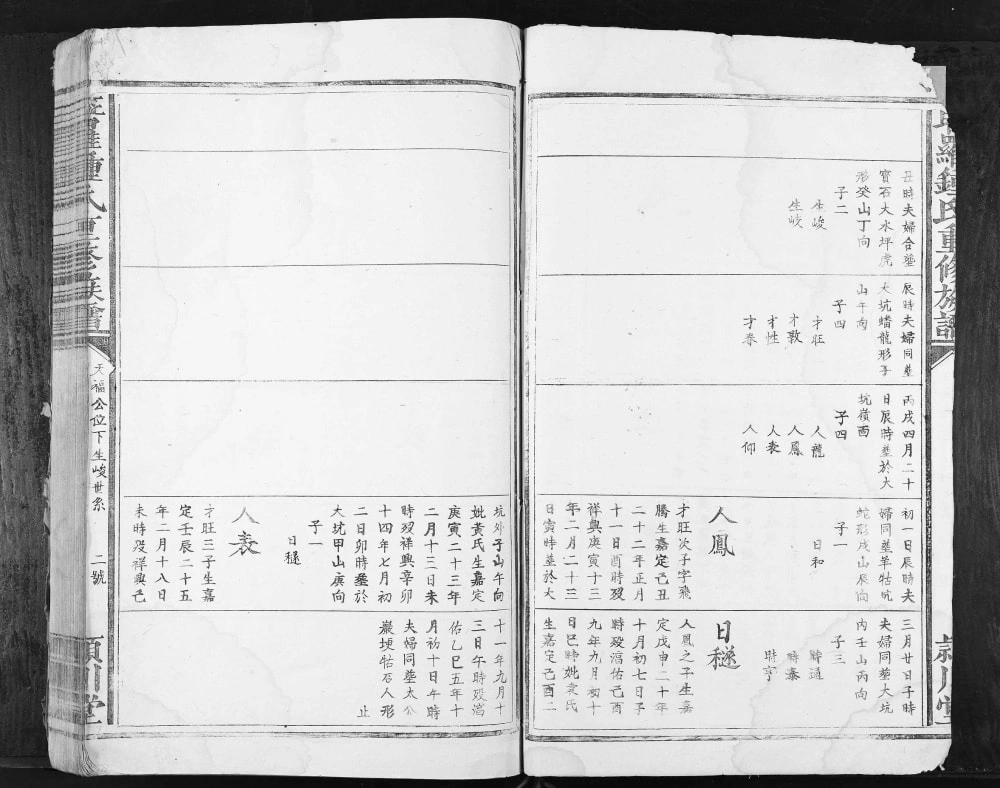 羅鍾氏重修族譜
丑時夫婦合塟
寶石大水坪虎
形癸山丁向
子二
生峻
生岐
辰時夫婦同塟
大坑蟠龍形子
山午向
子四
才旺
才敦
才性
才春
丙戌四月二十
日辰時塟於大
坑嶺酉
子四
人龍
人鳳
人表
人仰
初一日辰時夫
婦同塟羊牯坑
蛇形戌山辰向
子一
日和
人鳳
才旺次子字飛
騰生嘉定己丑
二十二年正月
十一日酉時歿
祥興庚寅十三
年二月二十三
日寅時塟於大
三月廿日子時
夫婦同塟大坑
內壬山丙向
子三
時道
時泰
時亨
日𥣬
人鳳之子生嘉
定戊申二十年
十月初七日子
時歿㵐佑己酉
九年九月初十
日巳時妣袁氏
生嘉定己酉二
潁川堂
坑外子山午向
妣黃氏生嘉定
庚寅二十三年
二月十三日未
時歿祥興辛卯
十四年七月初
二日卯時塟於
大坑甲山庚向
子一
日𥣬
人表
才旺三子生嘉
定壬辰二十五
年二月十八日
未時歿祥興己
十一年九月十
三日午時歿㵐
佑乙巳五年十
月初十日午時
夫婦同塟太公
巖埂牯石人形
止
羅鍾氏重修族譜
天福公位下生峻世系
二號
潁川堂